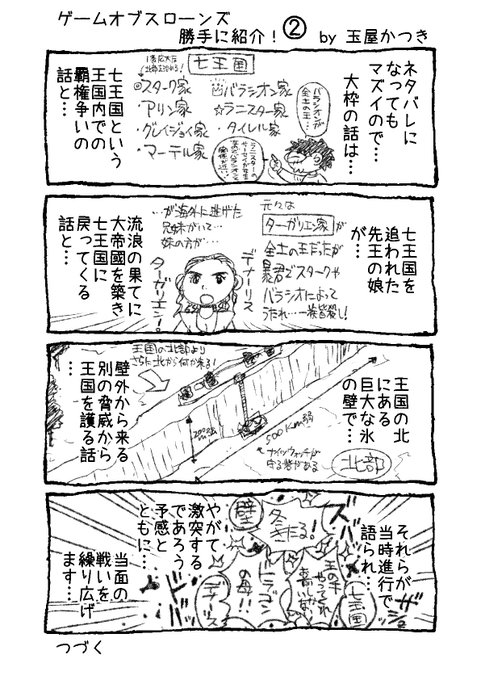 ゲームオブスローンズ
勝手に紹介！②　by 玉屋かつき
ネタバレに
なっても
マズイので…
大枠の話は…
七王国
◎スターク家
・アリン家
・グレイジョイ家
・マーテル家
凹バラシオン家
☆ラニスター家
・タイレル家
バラシオンが
全土の王…
七王国という
王国内での
覇権争いの
話と…
七王国を
追われた
先王の娘
が…
元々は
ターガリエン家が
全土の王だったが
暴君でスタークや
バラシオンによって
うたれ…一族皆殺し！
…が海外に逃げた
兄妹がいて…
妹の方が…
デナーリス
ターガリエン！
流浪の果てに
大帝國を築き
七王国に
戻ってくる
話と…
王国の北
にある
巨大な氷
の壁で…
王国の北部より
さらに北から何か来る！
200m強
500Km弱
ナイツウォッチが
守る砦がある
北部
壁外から来る
別の脅威から
王国を護る話
…
それらが
当時進行で
語られ…
ズバ
ザッ
七王国
冬きたる！
壁
ドラゴン
の母！！
デナーリス
やがて
激突する
であろう
予感と
ともに…
当面の
戦いを
繰り広げ
ます…
つづく